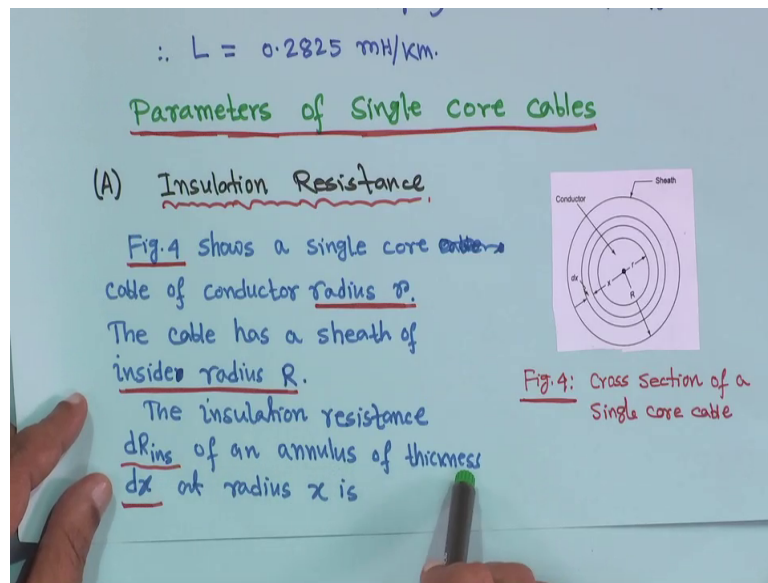 ∴ L = 0.2825 mH/km.
Parameters of Single core cables
(A) Insulation Resistance.
Fig.4 shows a single core
cable of conductor radius r.
The cable has a sheath of
inside radius R.
The insulation resistance
dRins of an annulus of thickness
dx at radius x is
Sheath
Conductor
dx
x
r
R
Fig.4: Cross Section of a
Single core cable